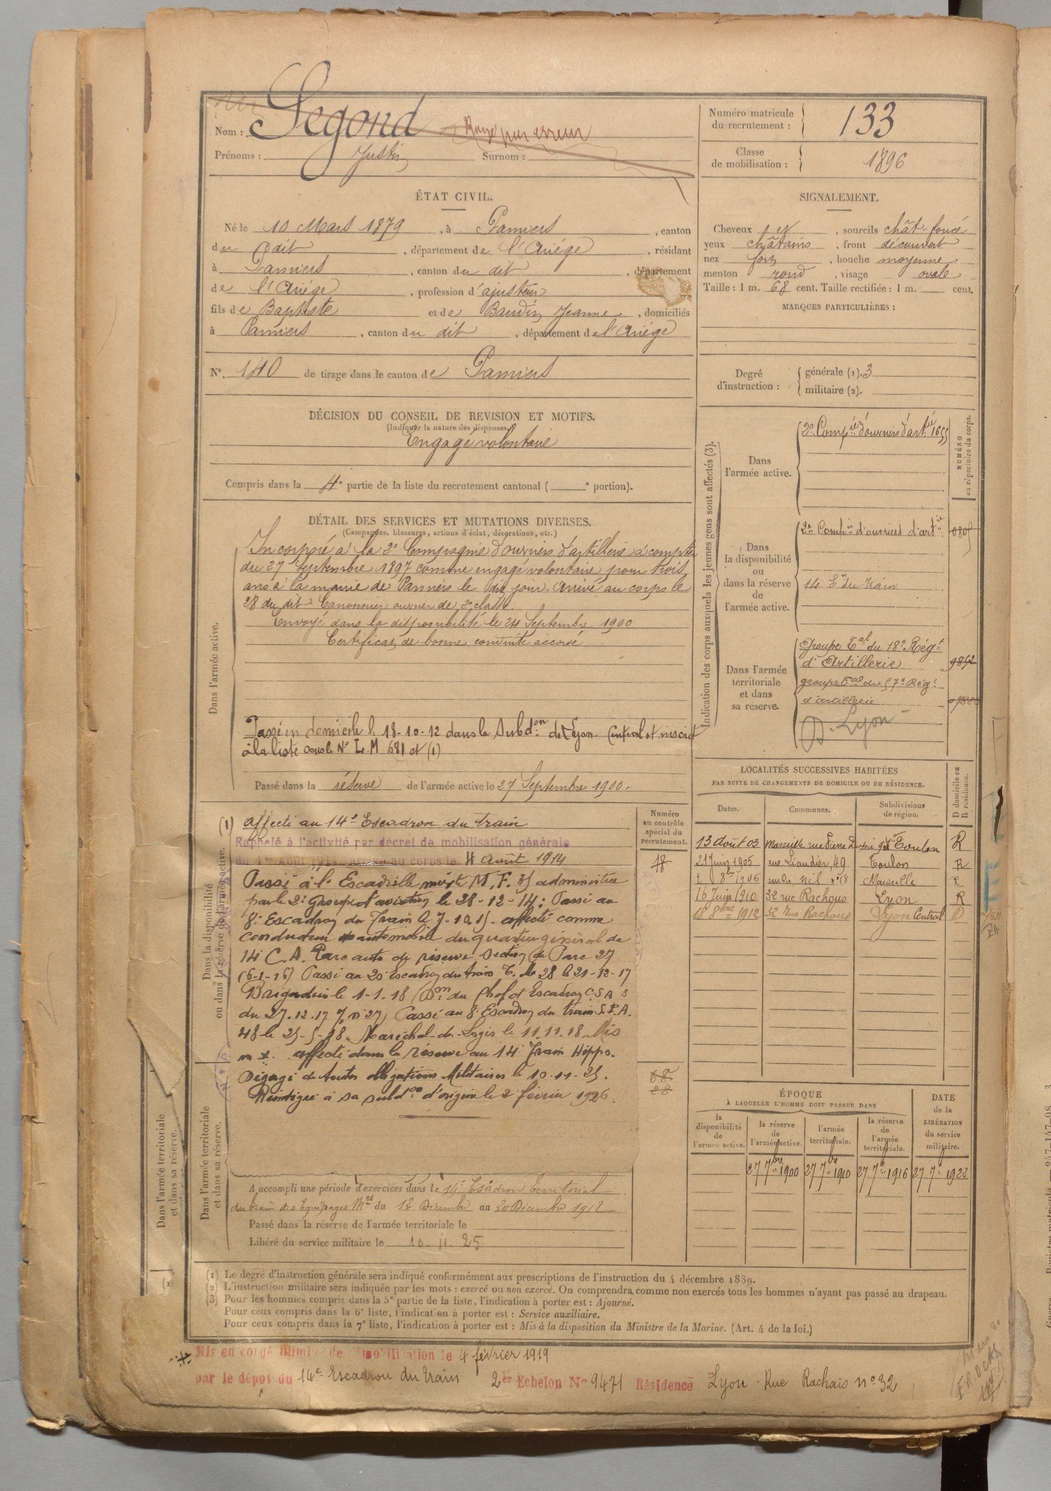 Nom : Segond Rayé par erreur
Prénoms : Justin Surnom :
Numéro matricule du recrutement : 133
Classe de mobilisation : 1896
ÉTAT CIVIL.
Né le 10 Mars 1879, à Pamiers, canton
du dit, département de l'Ariège, résidant
à Pamiers, canton du dit, département
de l'Ariège, profession d'ajusteur
fils de Baptiste et de Baudin Jeanne, domiciliés
à Pamiers, canton du dit, département de l'Ariège
N° 140 de tirage dans le canton de Pamiers
SIGNALEMENT.
Cheveux et, sourcils chât foncé
yeux châtains, front découvert
nez fort, bouche moyenne
menton rond, visage ovale
Taille : 1 m. 68 cent. Taille rectifiée : 1 m. cent.
MARQUES PARTICULIÈRES :
Degré d'instruction : générale (1). 3
militaire (2).
DÉCISION DU CONSEIL DE REVISION ET MOTIFS.
(Indiquer la nature des dispenses.)
Engagé volontaire
Compris dans la 4e partie de la liste du recrutement cantonal ( e portion).
DÉTAIL DES SERVICES ET MUTATIONS DIVERSES.
(Campagnes, blessures, actions d'éclat, décorations, etc.)
Dans l'armée active.
Incorporé à la 2e Compagnie d'ouvriers d'artillerie à compter
du 27 Septembre 1897 comme engagé volontaire pour trois
ans à la mairie de Pamiers le dit jour. Arrivé au corps le
28 du dit Canonnier ouvrier de 2e classe
Envoyé dans la disponibilité le 24 Septembre 1900
Certificat de bonne conduite accordé
Passé in domicile le 18-10-12 dans la Subdon de Lyon Central et inscrit
à la liste sous le N° L.M 681 et (1)
Passé dans la réserve de l'armée active le 27 Septembre 1900.
Indication des corps auxquels les jeunes gens sont affectés (3).
NUMÉRO au répertoire du corps.
Dans l'armée active.
2e Compie d'ouvriers d'artie 1655
Dans la disponibilité ou dans la réserve de l'armée active.
2e Compie d'ouvriers d'artie
14 Em du train
Dans l'armée territoriale et dans sa réserve.
Groupe Tal du 18e Régt
d'Artillerie
groupe Tal du 57e Régt
d'artillerie
Lyon
LOCALITÉS SUCCESSIVES HABITÉES
PAR SUITE DE CHANGEMENTS DE DOMICILE OU DE RÉSIDENCE.
Dates. Communes. Subdivisions de région. D domicile ou R résidence.
13 Août 03 Marseille rue Toulon R
21 Juin 1905 rue 49 Toulon R
8bre 1906 Marseille
16 Juin 1910 32 rue Rachais Lyon R
8bre 1912 32 rue Rachais Lyon Central D
Dans la disponibilité ou dans la réserve de l'armée active.
Numéro au contrôle spécial du recrutement.
48
(1) affecté au 14e Escadron du train
Rappelé à l'activité par décret de mobilisation générale
du 1er Août 1914. Arrivé au corps le 4 août 1914
Passé à l'Escadrille mixte M.F. 35 administrée
par le 2e Groupe d'aviation le 28-12-14; Passé au
8e Escadron du Train le 7.10.15 affecté comme
conducteur automobile du quartier général du
14 C.A. Parc auto de réserve Section de Parc 27
(6-1-16) Passé au 20 Escadron du train T.M 28 le 21-12-17
Brigadier le 1-1-18 (Don du Chef d'Escadron C.S.A 3
du 27.12.17 n° 27) Passé au 8 Escadron du train S.P.A.
48 le 25-5-18 Maréchal des Logis le 11.11.18. Mis
affecté dans la réserve au 14 Train Hippo.
Dégagé de toutes obligations Militaires le 10-11-25.
Réintégré à sa subdon d'origine le 2 février 1926.
ÉPOQUE
À LAQUELLE L'HOMME DOIT PASSER DANS
la disponibilité de l'armée active. la réserve de l'armée active. l'armée territoriale. la réserve de l'armée territoriale. DATE de la LIBÉRATION du service militaire.
27 7bre 1900 27 7bre 1910 27 7bre 1916 27 7bre 1922
Dans l'armée territoriale et dans sa réserve.
A accompli une période d'exercices dans le 14e Escadron territorial
du train des Equipages Mres du 12 Décembre au 20 Décembre 1912
Passé dans la réserve de l'armée territoriale le
Libéré du service militaire le 10. 11. 25
(1) Le degré d'instruction générale sera indiqué conformément aux prescriptions de l'instruction du 4 décembre 1889.
(2) L'instruction militaire sera indiquée par les mots : exercé ou non exercé. On comprendra comme non exercés tous les hommes n'ayant pas passé au drapeau.
(3) Pour les hommes compris dans la 5e partie de la liste, l'indication à porter est : Ajourné.
Pour ceux compris dans la 6e liste, l'indication à porter est : Service auxiliaire.
Pour ceux compris dans la 7e liste, l'indication à porter est : Mis à la disposition du Ministre de la Marine. (Art. 4 de la loi.)
Mis en congé illimité de démobilisation le 4 février 1919
par le dépôt du 14e Escadron du train 2er Echelon N° 9471 Résidence Lyon Rue Rachais n° 32